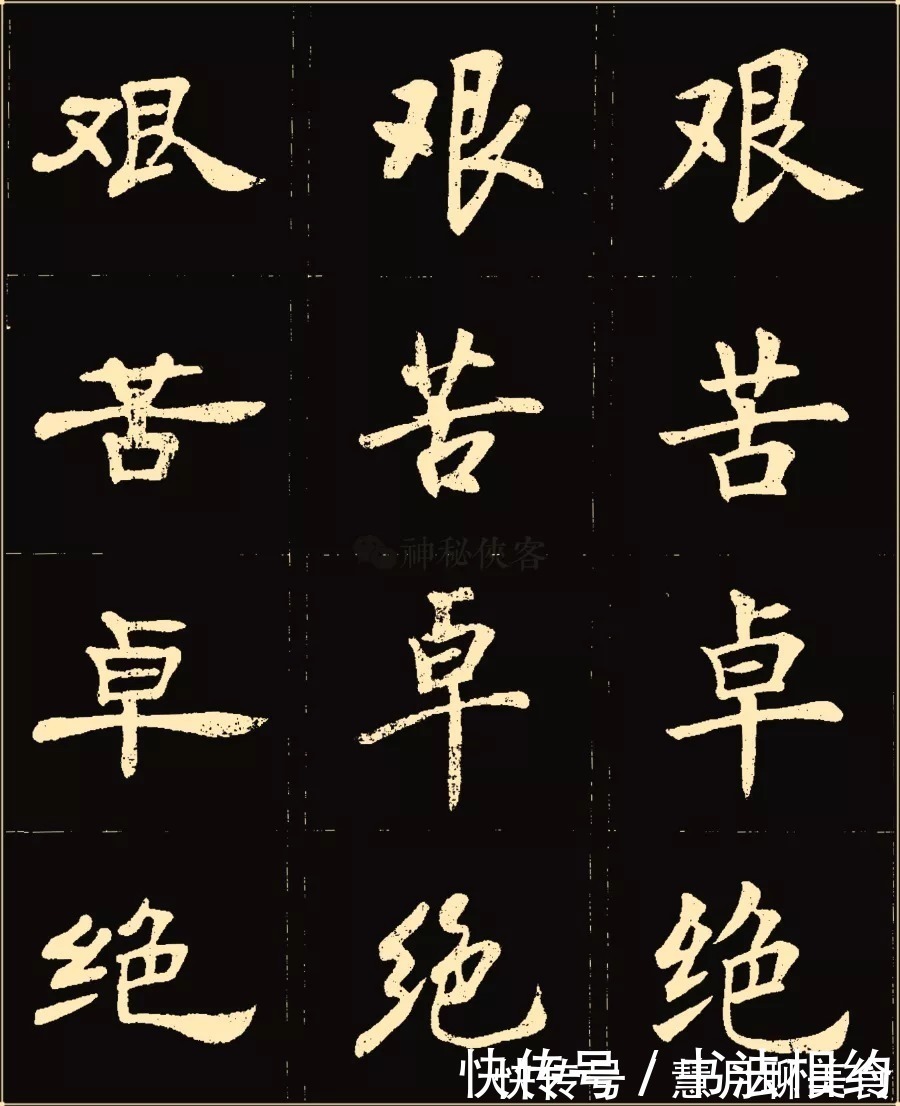 艰 艰 艰
苦 苦 苦
神秘侠客
卓 卓 卓
绝 绝 绝
快传号 /